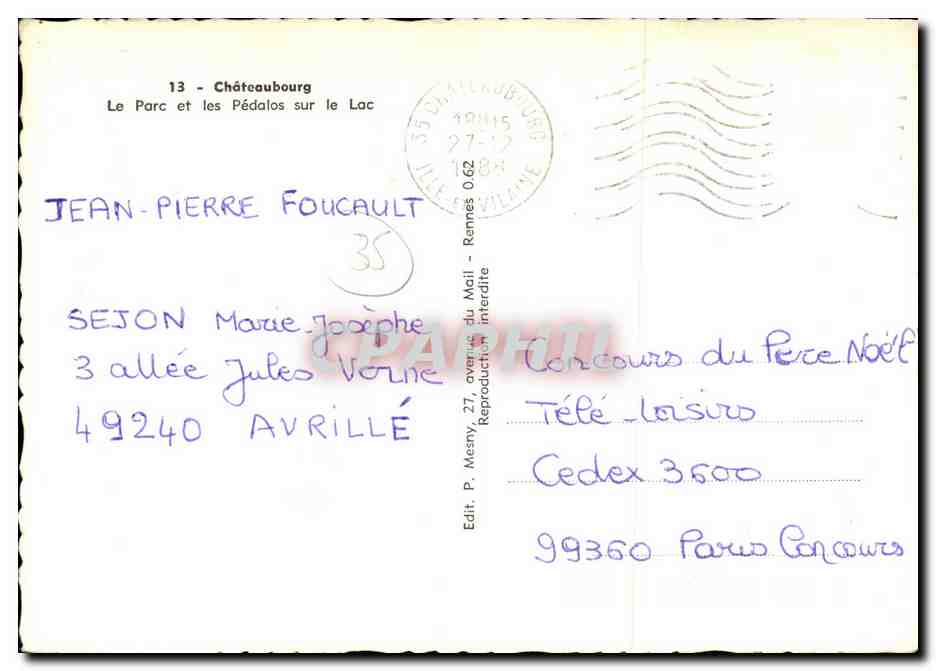 13 - Châteaubourg
Le Parc et les Pédalos sur le Lac
35 CHATEAUBOURG
27-12
ILLE-ET-VILAINE
JEAN-PIERRE FOUCAULT
35
SEJON Marie-Josèphe
3 allée Jules Verne
49240 AVRILLÉ
CPAPHIL
Edit. P. Mesny, 27, avenue du Mail - Rennes 0.62
Reproduction interdite
Concours du Pere Noël
Télé-Loisirs
Cedex 3600
99360 Paris Concours